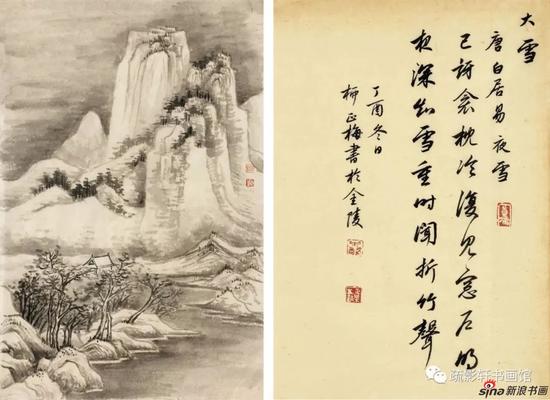 大雪
唐 白居易 夜雪
已訝衾枕冷復見窗户明
夜深知雪重时聞折竹聲
丁酉冬日
柳正梅書於金陵
疏影轩书画馆
sina 新浪书画